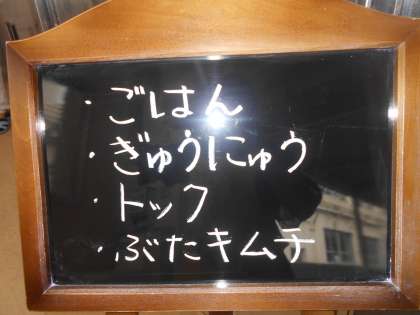 ・ごはん
・ぎゅうにゅう
・トック
・ぶたキムチ